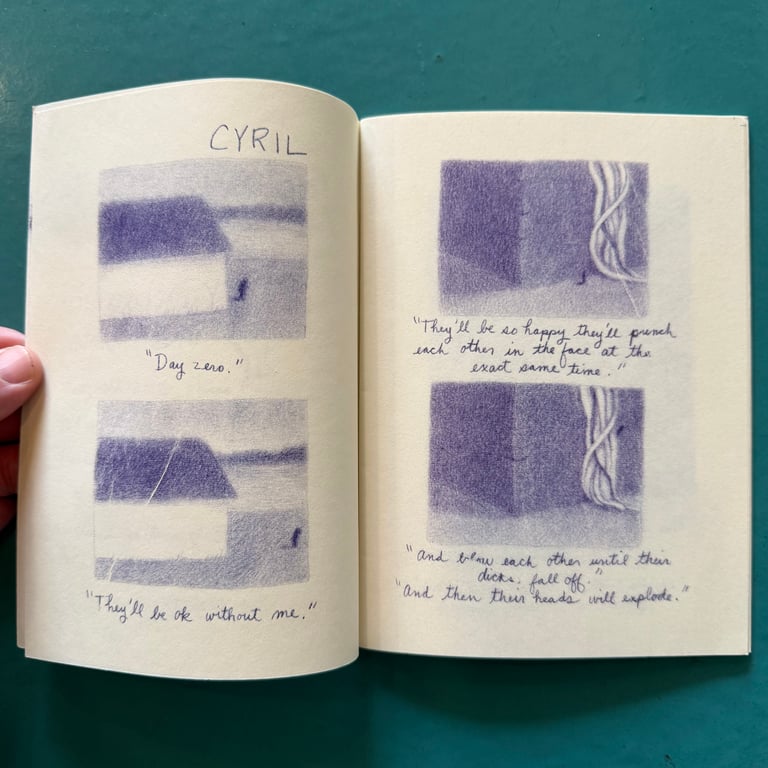 CYRIL
"Day zero."
"They'll be ok without me."
"They'll be so happy they'll punch
each other in the face at the
exact same time."
"And blow each other until their
dicks fall off."
"And then their heads will explode."